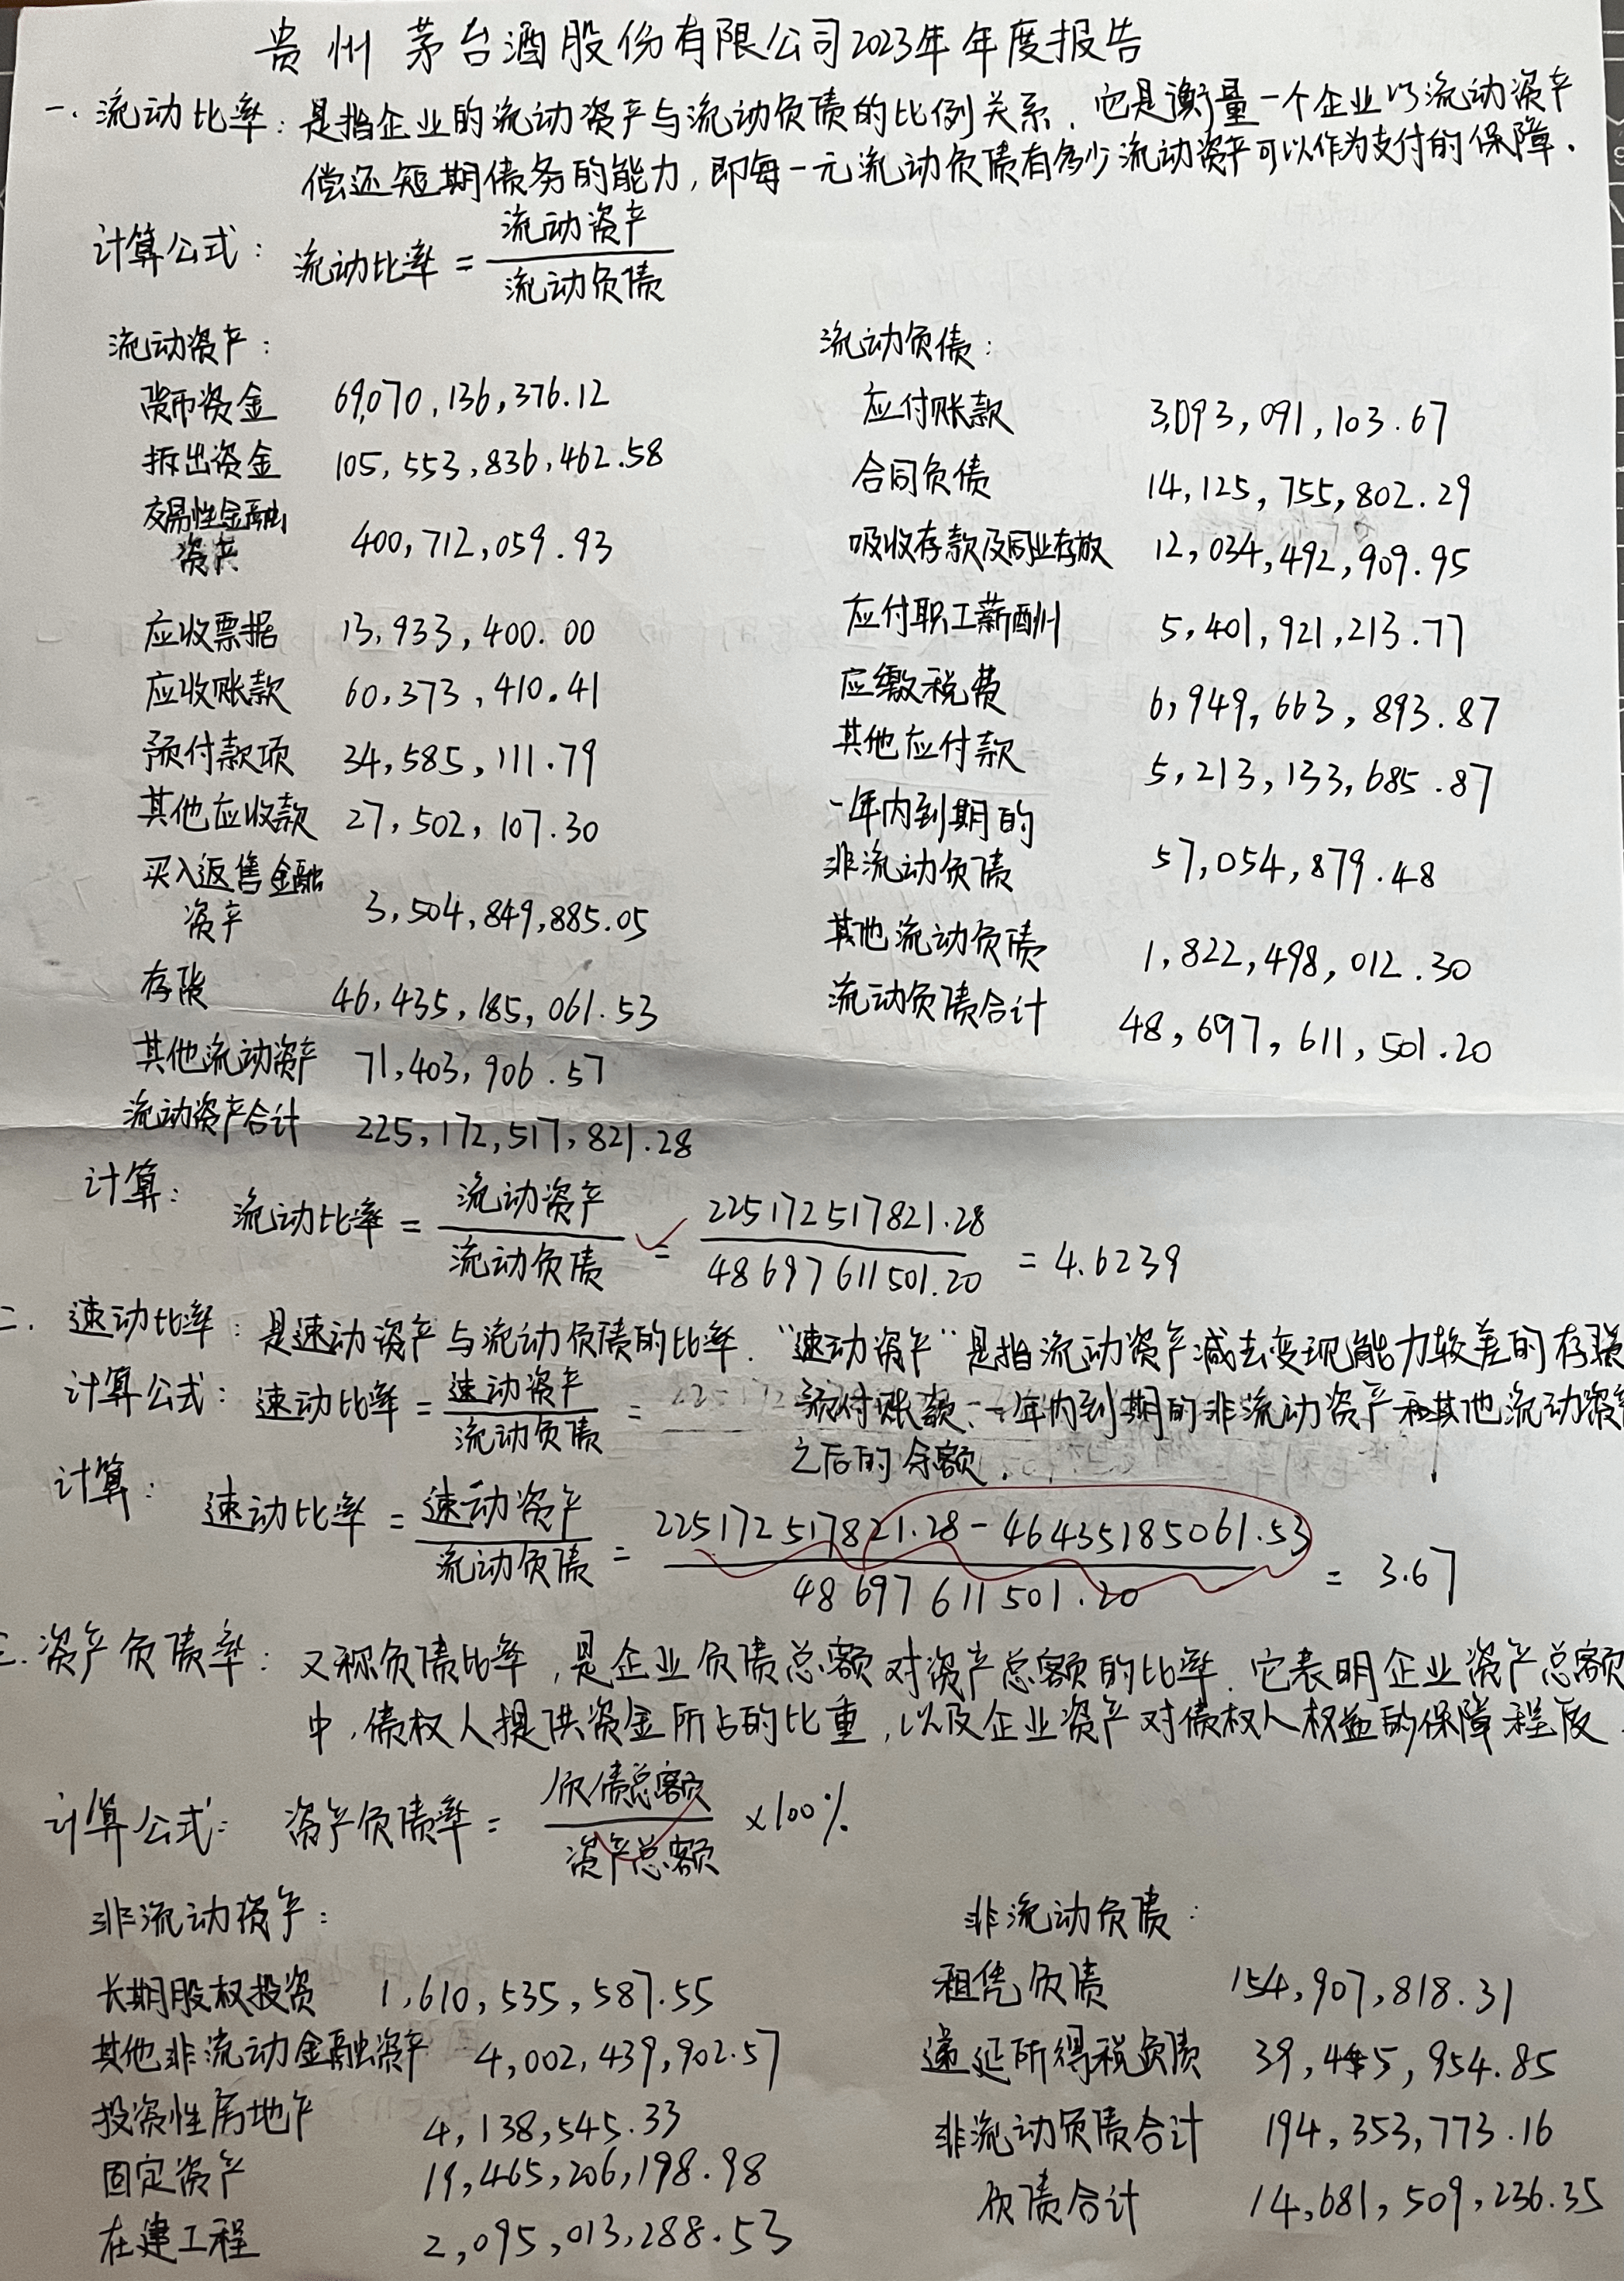 贵州茅台酒股份有限公司2023年年度报告
一.流动比率：是指企业的流动资产与流动负债的比例关系.它是衡量一个企业以流动资产
偿还短期债务的能力,即每一元流动负债有多少流动资产可以作为支付的保障.
计算公式：流动比率=流动资产/流动负债
流动资产：
货币资金 69,070,136,376.12
拆出资金 105,553,836,462.58
交易性金融
资产 400,712,059.93
应收票据 13,933,400.00
应收账款 60,373,410.41
预付款项 34,585,111.79
其他应收款 27,502,107.30
买入返售金融
资产 3,504,849,885.05
存货 46,435,185,061.53
其他流动资产 71,403,906.57
流动资产合计 225,172,517,821.28
流动负债：
应付账款 3,093,091,103.67
合同负债 14,125,755,802.29
吸收存款及同业存放 12,034,492,909.95
应付职工薪酬 5,401,921,213.77
应缴税费 6,949,663,893.87
其他应付款 5,213,133,685.87
一年内到期的
非流动负债 57,054,879.48
其他流动负债 1,822,498,012.30
流动负债合计 48,697,611,501.20
计算：流动比率=流动资产/流动负债=225172517821.28/48697611501.20=4.6239
二.速动比率：是速动资产与流动负债的比率."速动资产"是指流动资产减去变现能力较差的存货
预付账款、一年内到期的非流动资产和其他流动资产
之后的余额.
计算公式：速动比率=速动资产/流动负债=
计算：速动比率=速动资产/流动负债=225172517821.28-46435185061.53/48697611501.20=3.67
三.资产负债率：又称负债比率,是企业负债总额对资产总额的比率.它表明企业资产总额
中,债权人提供资金所占的比重,以及企业资产对债权人权益的保障程度.
计算公式：资产负债率=负债总额/资产总额×100%
非流动资产：
长期股权投资 1,610,535,587.55
其他非流动金融资产 4,002,439,902.57
投资性房地产 4,138,545.33
固定资产 19,465,206,198.98
在建工程 2,095,013,288.53
非流动负债：
租凭负债 154,907,818.31
递延所得税负债 39,445,954.85
非流动负债合计 194,353,773.16
负债合计 14,681,509,236.35